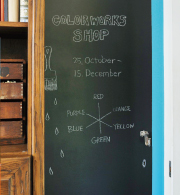 COLONWORKS
SHOP
25. October -
15. December
RED
PURPLE ORANGE
BLUE YELLOW
GREEN